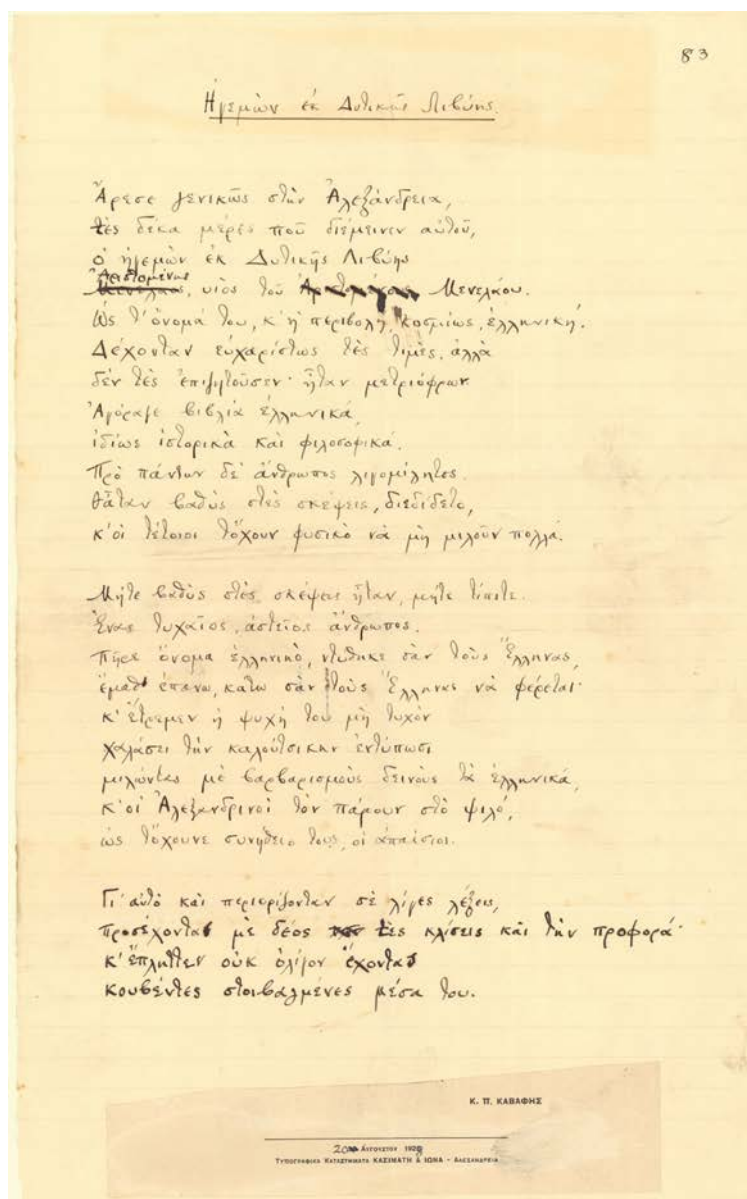 83
Ἡγεμὼν ἐκ Δυτικῆς Λιβύης.
Ἄρεσε γενικῶς στὴν Ἀλεξάνδρεια,
τὲς δέκα μέρες ποῦ διέμεινεν αὐτοῦ,
ὁ ἡγεμὼν ἐκ Δυτικῆς Λιβύης
Ἀριστομένης
Μενέλαος, υἱὸς τοῦ Μενελάου.
Ὡς τ' ὄνομά του, κ' ἡ περιβολή, κοσμίως, ἑλληνική.
Δέχονταν εὐχαρίστως τὲς τιμές, ἀλλὰ
δὲν τὲς ἐπιζητοῦσεν· ἦταν μετριόφρων.
Ἀγόραζε βιβλία ἑλληνικά,
ἰδίως ἱστορικὰ καὶ φιλοσοφικά.
Πρὸ πάντων δὲ ἄνθρωπος λιγομίλητος.
Θἆταν βαθὺς στὲς σκέψεις, διεδίδετο,
κ' οἱ τέτοιοι τὄχουν φυσικὸ νὰ μὴ μιλοῦν πολλά.
Μήτε βαθὺς στὲς σκέψεις ἦταν, μήτε τίποτε.
Ἕνας τυχαῖος, ἀστεῖος ἄνθρωπος.
Πῆρε ὄνομα ἑλληνικό, ντύθηκε σὰν τοὺς Ἕλληνας,
ἔμαθ' ἐπάνω, κάτω σὰν τοὺς Ἕλληνας νὰ φέρεται·
κ' ἔτρεμεν ἡ ψυχή του μὴ τυχὸν
χαλάσει τὴν καλούτσικην ἐντύπωσι
μιλώντας μὲ βαρβαρισμοὺς δεινοὺς τὰ ἑλληνικά,
κ' οἱ Ἀλεξανδρινοὶ τὸν πάρουν στὸ ψιλό,
ὡς τὄχουνε συνήθειο τους, οἱ ἀπαίσιοι.
Γι' αὐτὸ καὶ περιορίζονταν σὲ λίγες λέξεις,
προσέχοντας μὲ δέος τὲς κλίσεις καὶ τὴν προφορά·
κ' ἔπληττεν οὐκ ὀλίγον ἔχοντας
κουβέντες στοιβαγμένες μέσα του.
Κ. Π. ΚΑΒΑΦΗΣ
20 ΑΥΓΟΥΣΤΟΥ 1928
ΤΥΠΟΓΡΑΦΙΚΑ ΚΑΤΑΣΤΗΜΑΤΑ ΚΑΣΙΜΑΤΗ & ΙΩΝΑ - ΑΛΕΞΑΝΔΡΕΙΑ